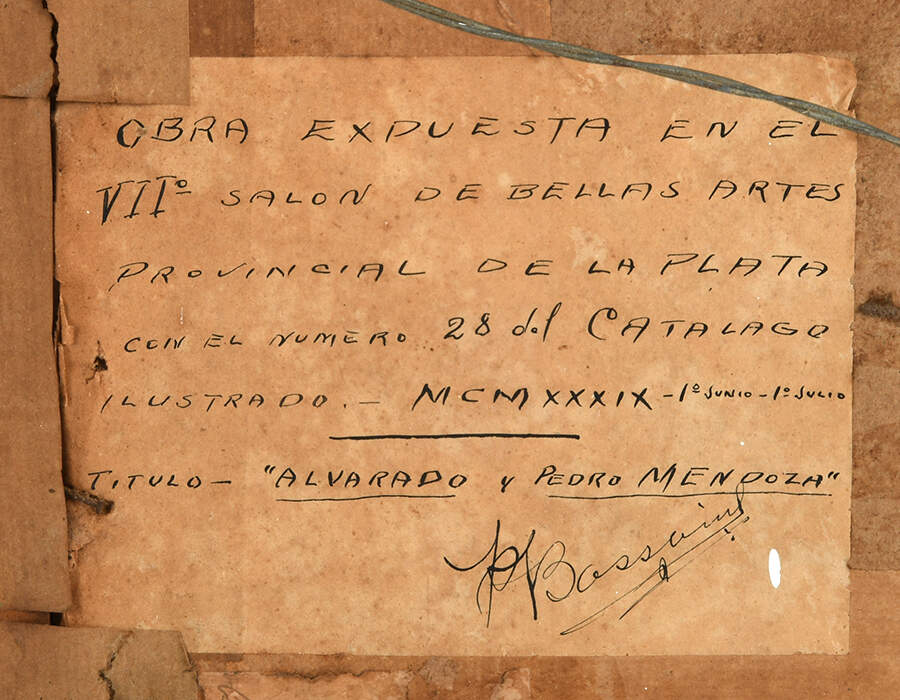 OBRA EXPUESTA EN EL
VIIº SALON DE BELLAS ARTES
PROVINCIAL DE LA PLATA
CON EL NUMERO 28 del CATALAGO
ILUSTRADO. — MCMXXXIX - 1º JUNIO - 1º JULIO
TITULO — "ALVARADO Y PEDRO MENDOZA"